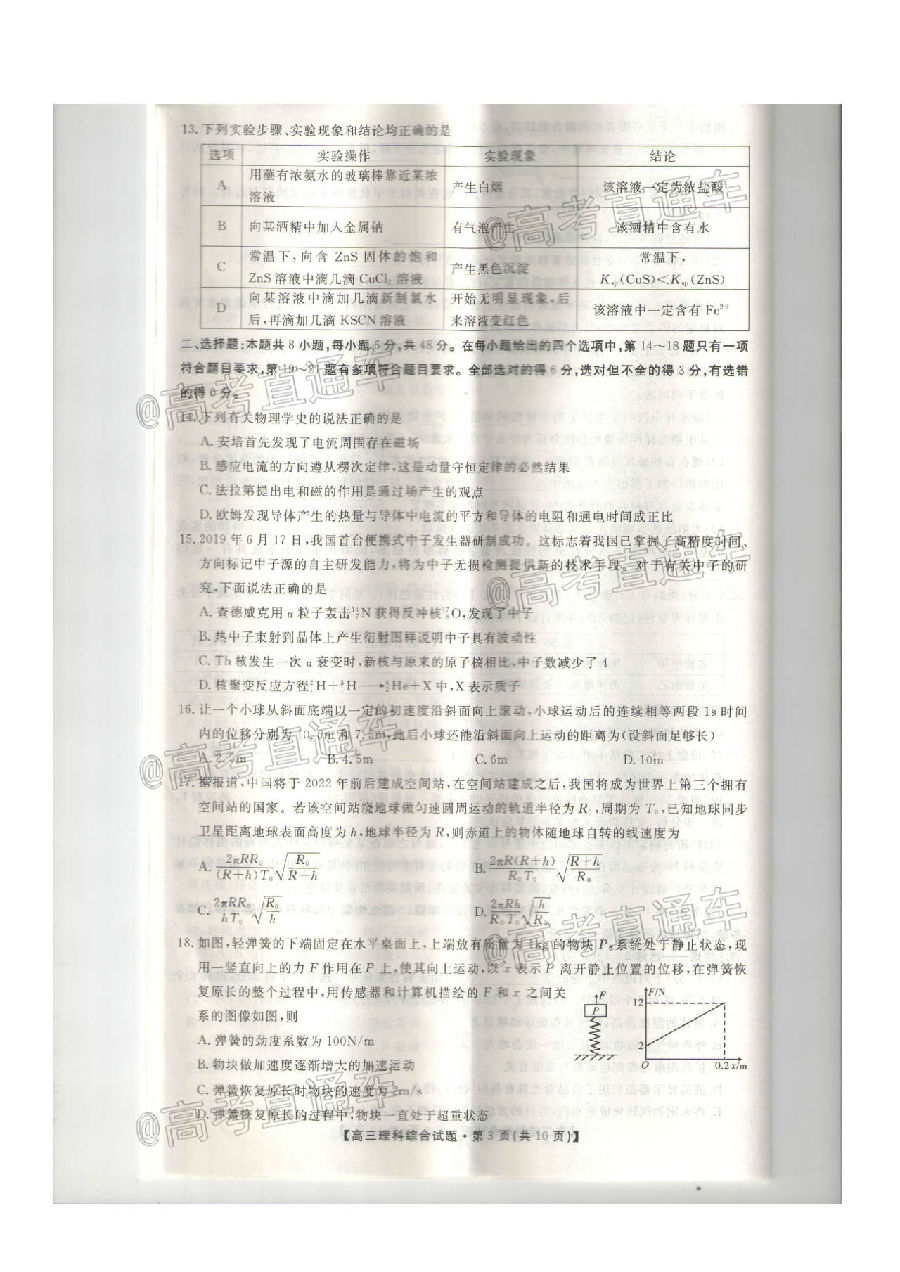 13.下列实验步骤、实验现象和结论均正确的是
选项 实验操作 实验现象 结论
A 用蘸有浓氨水的玻璃棒靠近某浓溶液 产生白烟 该溶液一定为浓盐酸
B 向某酒精中加入金属钠 有气泡产生 该酒精中含有水
C 常温下,向含 ZnS 固体的饱和 ZnS 溶液中滴几滴 CuCl₂ 溶液 产生黑色沉淀 常温下, Ksp(CuS)<Ksp(ZnS)
D 向某溶液中滴加几滴新制氯水后,再滴加几滴 KSCN 溶液 开始无明显现象,后来溶液变红色 该溶液中一定含有 Fe²⁺
二、选择题:本题共 8 小题,每小题 6 分,共 48 分。在每小题给出的四个选项中,第 14~18 题只有一项
符合题目要求,第 19~21 题有多项符合题目要求。全部选对的得 6 分,选对但不全的得 3 分,有选错
的得 0 分。
14.下列有关物理学史的说法正确的是
A.安培首先发现了电流周围存在磁场
B.感应电流的方向遵从楞次定律,这是动量守恒定律的必然结果
C.法拉第提出电和磁的作用是通过场产生的观点
D.欧姆发现导体产生的热量与导体中电流的平方和导体的电阻和通电时间成正比
15.2019 年 6 月 17 日,我国首台便携式中子发生器研制成功。这标志着我国已掌握了高精度时间、
方向标记中子源的自主研发能力,将为中子无损检测提供新的技术手段。对于有关中子的研
究,下面说法正确的是
A.查德威克用 α 粒子轰击¹⁴₇N 获得反冲核¹⁷₈O,发现了中子
B.热中子束射到晶体上产生衍射图样说明中子具有波动性
C.Th 核发生一次 α 衰变时,新核与原来的原子核相比,中子数减少了 4
D.核聚变反应方程²₁H+³₁H ⟶⁴₂He+X 中,X 表示质子
16.让一个小球从斜面底端以一定的初速度沿斜面向上滚动,小球运动后的连续相等两段 1s 时间
内的位移分别为 m 和 m,此后小球还能沿斜面向上运动的距离为(设斜面足够长)
A. m B.4.5m C.6m D.10m
17.据报道,中国将于 2022 年前后建成空间站,在空间站建成之后,我国将成为世界上第三个拥有
空间站的国家。若该空间站绕地球做匀速圆周运动的轨道半径为 R₀,周期为 T₀,已知地球同步
卫星距离地球表面高度为 h,地球半径为 R,则赤道上的物体随地球自转的线速度为
A. 2πRR₀/((R+h)T₀) √(R₀/(R+h)) B. 2πR(R+h)/(R₀T₀) √((R+h)/R₀)
C. 2πRR₀/(hT₀) √(R₀/h) D. 2πRh/(R₀T₀) √(h/R₀)
18.如图,轻弹簧的下端固定在水平桌面上,上端放有质量为 1kg 的物块 P,系统处于静止状态,现
用一竖直向上的力 F 作用在 P 上,使其向上运动,以 x 表示 P 离开静止位置的位移,在弹簧恢
复原长的整个过程中,用传感器和计算机描绘的 F 和 x 之间关
系的图像如图,则
A.弹簧的劲度系数为 100N/m
B.物块做加速度逐渐增大的加速运动
C.弹簧恢复原长时物块的速度为 2m/s
D.弹簧恢复原长的过程中,物块一直处于超重状态
F
P
F/N
12
2
O
0.2 x/m
【高三理科综合试题·第 3 页(共 10 页)】
@高考直通车
@高考直通车
@高考直通车
@高考直通车
@高考直通车
@高考直通车